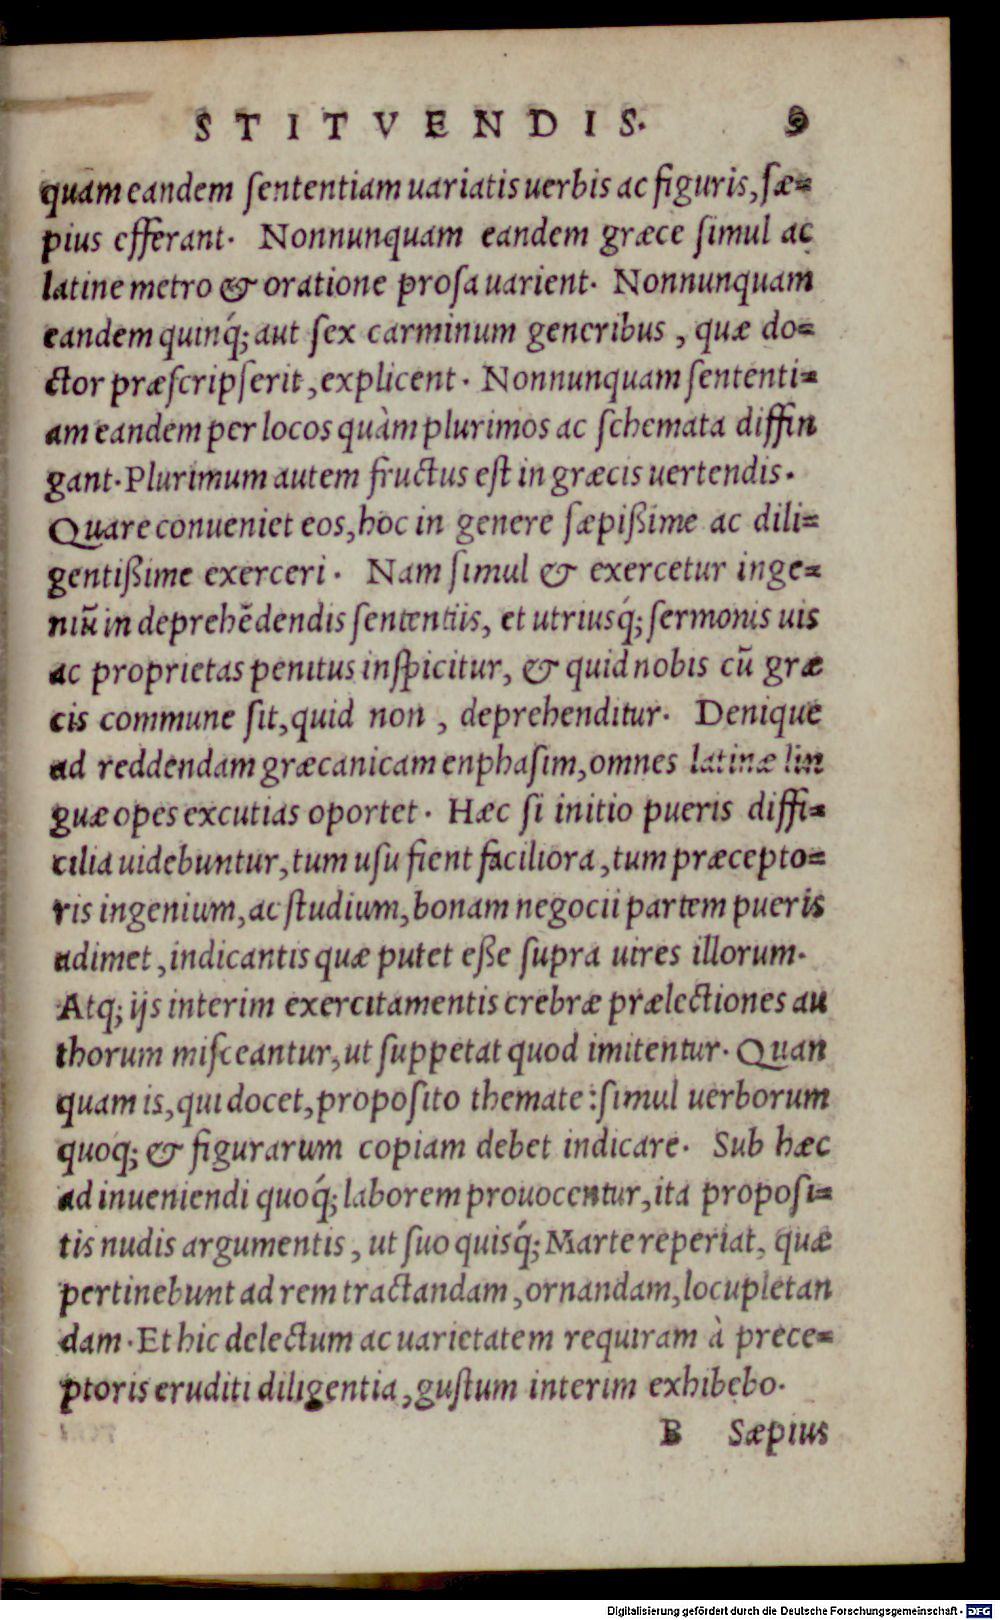 STITVENDIS. 9
quam eandem sententiam uariatis uerbis ac figuris, sæ=
pius efferant. Nonnunquam eandem græce simul ac
latine metro & oratione prosa uarient. Nonnunquam
eandem quinq́; aut sex carminum generibus, quæ do=
ctor præscripserit, explicent. Nonnunquam sententi=
am eandem per locos quàm plurimos ac schemata diffin
gant. Plurimum autem fructus est in græcis uertendis.
Quare conueniet eos, hoc in genere sæpißime ac dili=
gentißime exerceri. Nam simul & exercetur inge=
niũ in deprehẽdendis sententiis, et utriusq́; sermonis uis
ac proprietas penitus inspicitur, & quid nobis cũ græ
cis commune sit, quid non, deprehenditur. Denique
ad reddendam græcanicam enphasim, omnes latinæ lin
guæ opes excutias oportet. Hæc si initio pueris diffi=
cilia uidebuntur, tum usu fient faciliora, tum præcepto=
ris ingenium, ac studium, bonam negocii partem pueris
adimet, indicantis quæ putet eße supra uires illorum.
Atq; ijs interim exercitamentis crebræ prælectiones au
thorum misceantur, ut suppetat quod imitentur. Quan
quam is, qui docet, proposito themate: simul uerborum
quoq; & figurarum copiam debet indicare. Sub hæc
ad inueniendi quoq́; laborem prouocentur, ita proposi=
tis nudis argumentis, ut suo quisq́; Marte reperiat, quæ
pertinebunt ad rem tractandam, ornandam, locupletan
dam. Et hic delectum ac uarietatem requiram à prece=
ptoris eruditi diligentia, gustum interim exhibebo.
B Sæpius
Digitalisierung gefördert durch die Deutsche Forschungsgemeinschaft - DFG